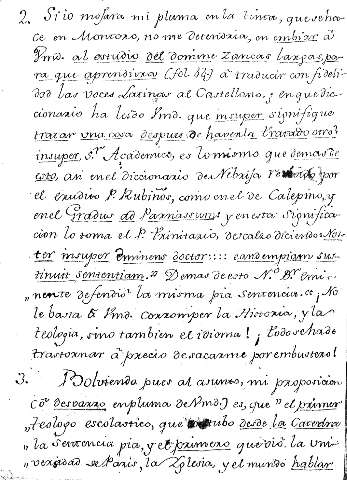 2. Si io mojara mi pluma en la tinta, que se ha-
ce en Monzoro, no me detendria, en embiar á
Vmd. al estudio del domine Zancas largas pa-
ra que aprendiera (fol. 64.) á traducir con fideli-
dad las voces Latinas al Castellano; en que dic-
cionario ha leido Vmd. que insuper signifique
trazar una cosa despues de haverla tratado otro?
insuper, Sr. Academico, es lo mismo que demas de
esto, asi en el diccionario de Nebrija por
el erudito P. Rubiños, como en el de Calepino, y
en el Gradus ad Parnassum; y en esta significa-
cion lo toma el P. Trinitario, descalzo diciendo: Nos-
ter insuper eminens doctor:::: eandem piam sus-
tinuit sententiam. Demas de esto N.º Dr. emi-
nente defendió la misma pia sentencia. ¡No
le basta á Vmd. corromper la Historia, y la
teologia, sino tambien el idioma! ¡todo se ha de
trastornar á precio de sacarme por embustero!
3. Bolviendo pues al asunto, mi proposicion
desbarro en pluma de Vmd.) es, que el primer
teologo escolastico, que tubo desde la Catedra
la sentencia pia, y el primero que vió la Uni-
versidad de Paris, la Iglesia, y el mundo hablar